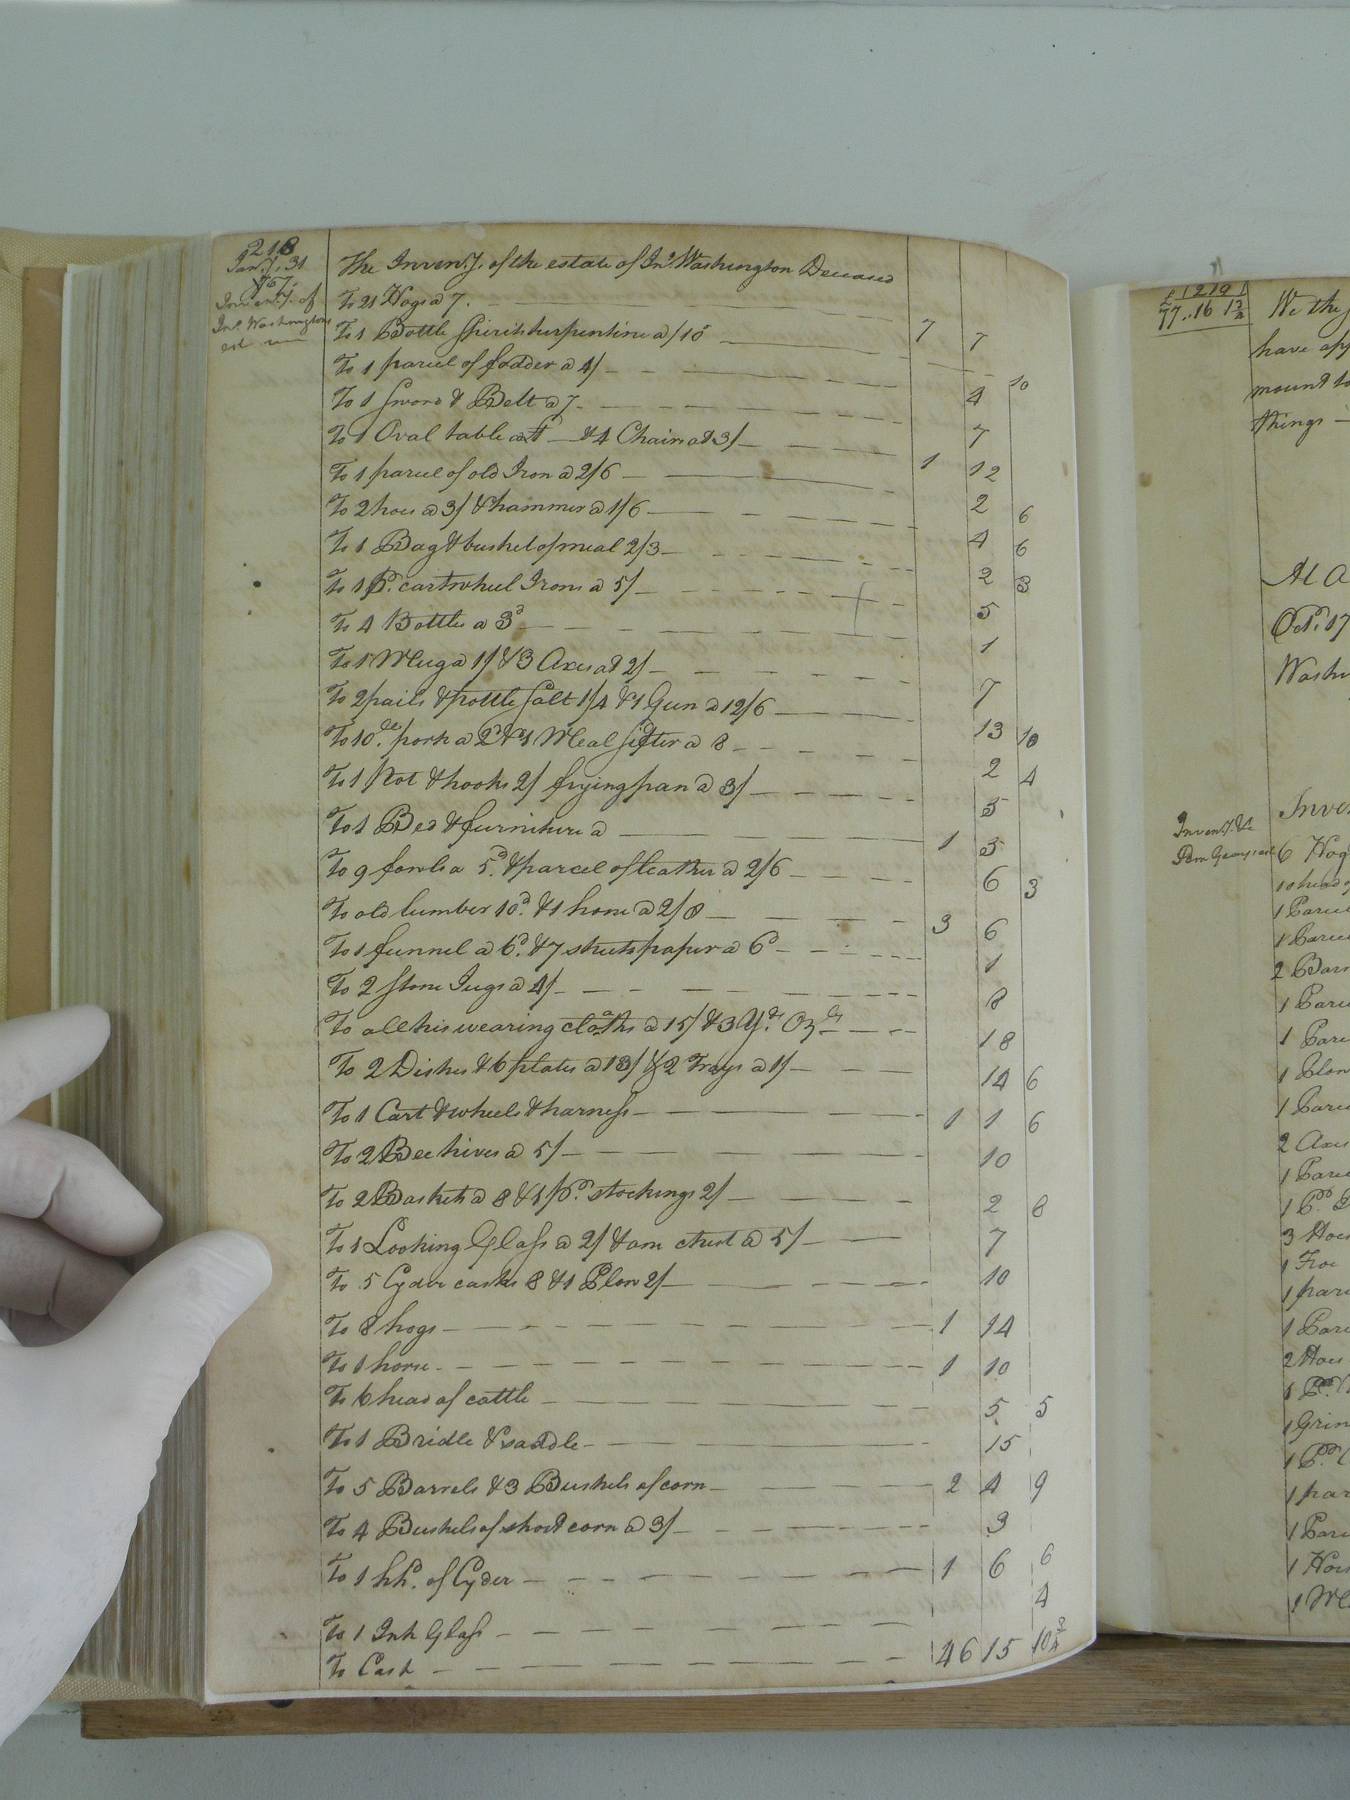 218
Jan.y 31
Inven.y of
Jn.o Washington
est
The Inven.y of the estate of Jn.o Washington Deceased
To 21 Hogs a 7. 7 7
To 1 Bottle Spirits turpentine a /10 10
To 1 parcel of fodder a 4/ 4
To 1 Sword & Belt a 7 7
To 1 Oval table a & 4 Chairs at 3/ 1 12
To 1 parcel of old Iron a 2/6 2 6
To 2 hoes a 3/ & hammer a 1/6 4 6
To 1 Bag & bushel of meal 2/3 2 3
To 1 p.r cartwheel Irons a 5/ 5
To 4 Bottles a 3d 1
To 1 Mug a 1/ & 3 Axes at 2/ 7
To 2 pails & pottle Salt 1/4 & 1 Gun a 12/6 13 10
To 10 pork a 2d & 1 Meal sifter a 8 2 4
To 1 Pot & hooks 2/ frying pan a 3/ 5
To 1 Bed & furniture a 1 5
To 9 fowls a 5d & parcel of leather a 2/6 6 3
To old lumber 10d & 1 horse a 2/8 3 6
To 1 funnel a 6d & 7 sheets paper a 6d 1
To 2 Stone Jugs a 4/ 8
To all his wearing cloaths a 15/ & 3 Yds Ozgs 18
To 2 Dishes & 6 plates a 13/ & 2 Trays a 1/ 14 6
To 1 Cart & wheels & harness 1 1 6
To 2 Bee hives a 5/ 10
To 2 Baskets a 8 & 1 pr stockings 2/ 2 8
To 1 Looking Glass a 2/ & am chest a 5/ 7
To 5 Cyder casks 8 & 1 Plow 2/ 10
To 8 hogs 1 14
To 1 horse 1 10
To 6 head of cattle 5 5
To 1 Bridle & saddle 15
To 5 Barrels & 3 Bushels of corn 2 4 9
To 4 Bushels of short corn a 3/ 3
To 1 hhd. of Cyder 1 6 6
To 1 Ink Glass 4
To Cash 46 15 10 3/4
219
£77..16 1 3/4
We the
have app
mount to
things
At a
Oct. 17
Washi
Inven.y &c
Inve
6 Hog
10 head
1 Parce
1 Parce
2 Barr
1 Parc
1 Parc
1 Plow
1 Parce
2 Axes
1 Parce
1 Pr.
3 Hoes
1 Froe
1 parc
1 Parc
2 Hoes
1 Pr.
1 Grin
1 Pr.
1 par
1 Parc
1 Hors